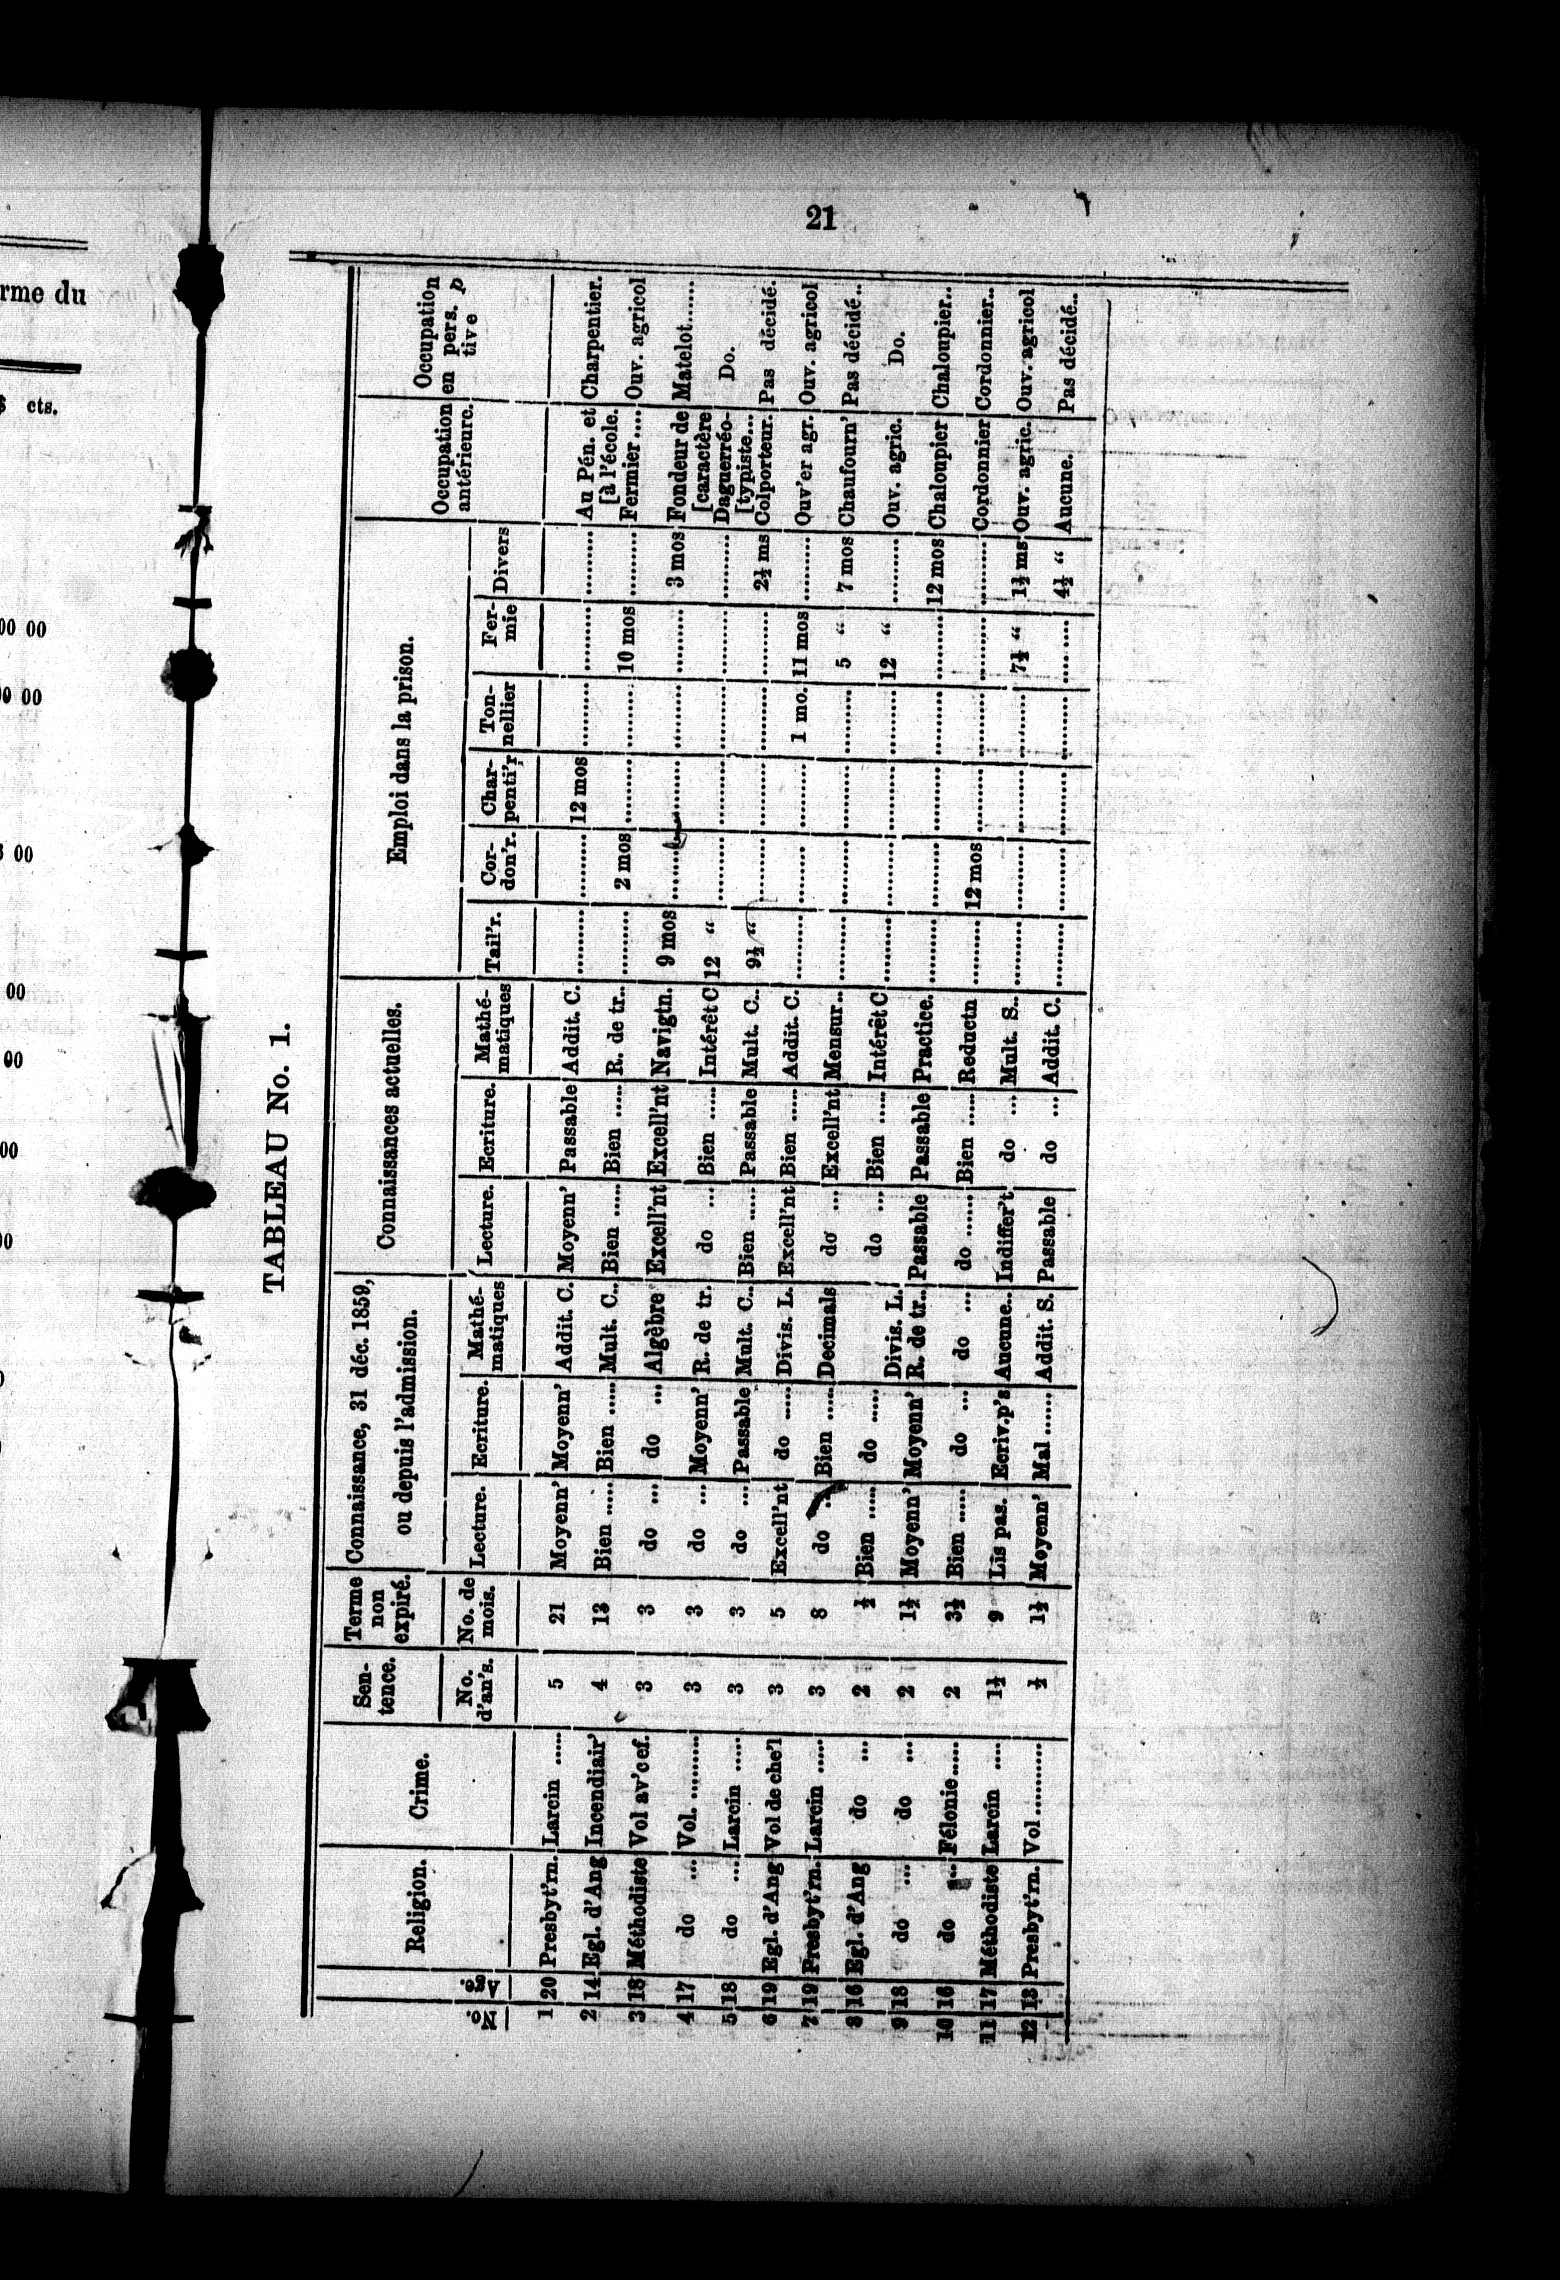 rme du
cts.
00 00
00 00
00
00
00
00
21
TABLEAU No. 1.
No. Age. Religion. Crime. Sentence. Terme non expiré. Connaissance, 31 déc. 1859, ou depuis l'admission. Connaissances actuelles. Emploi dans la prison. Occupation antérieure. Occupation en pers. p tive
No. d'an's. No. de mois. Lecture. Ecriture. Mathématiques Lecture. Ecriture. Mathématiques Tail'r. Cordon'r. Charpenti'r Tonnellier Fermie Divers
1 20 Presbyt'rn. Larcin ..... 5 21 Moyenn' Moyenn' Addit. C. Moyenn' Passable Addit. C. .......... .......... 12 mos .......... .......... .......... Au Pén. et [à l'école. Charpentier.
2 14 Egl. d'Ang Incendiair' 4 13 Bien ..... Bien ..... Mult. C.. Bien ..... Bien ..... R. de tr.. .......... 2 mos .......... .......... 10 mos .......... Fermier.... Ouv. agricol
3 18 Méthodiste Vol av'cef. 3 3 do ... do ... Algèbre Excell'nt Excell'nt Navigtn. 9 mos .......... .......... .......... .......... 3 mos Fondeur de [caractère Matelot......
4 17 do ... Vol. .......... 3 3 do ... Moyenn' R. de tr. do ... Bien ..... Intérêt C 12 " .......... .......... .......... .......... .......... Daguerréo- [typiste... Do.
5 18 do ... Larcin ..... 3 3 do ... Passable Mult. C.. Bien ..... Passable Mult. C.. 9½ " .......... .......... .......... .......... 2½ ms Colporteur. Pas décidé.
6 19 Egl. d'Ang Vol de che'l 3 5 Excell'nt do ..... Divis. L. Excell'nt Bien ..... Addit. C. .......... .......... .......... 1 mo. 11 mos .......... Ouv'er agr. Ouv. agricol
7 19 Presbyt'rn. Larcin ..... 3 8 do ... Bien ..... Decimals do ... Excell'nt Mensur.. .......... .......... .......... .......... 5 " 7 mos Chaufourn' Pas décidé..
8 16 Egl. d'Ang do ... 2 ½ Bien ..... do ..... Divis. L. do ... Bien ..... Intérêt C .......... .......... .......... .......... 12 " .......... Ouv. agric. Do.
9 18 do ... do ... 2 1½ Moyenn' Moyenn' R. de tr.. Passable Passable Practice. .......... .......... .......... .......... .......... 12 mos Chaloupier Chaloupier..
10 16 do ... Félonie..... 2 3½ Bien ..... do ... do ... do ...... Bien ..... Reductn .......... 12 mos .......... .......... .......... .......... Cordonnier Cordonnier..
11 17 Méthodiste Larcin .... 1½ 9 Lis pas. Ecriv.p's Aucune.. Indiffer't do ... Mult. S.. .......... .......... .......... .......... 7½ " 1½ ms Ouv. agric. Ouv. agricol
12 13 Presbyt'rn. Vol.......... ½ 1½ Moyenn' Mal ...... Addit. S. Passable do ... Addit. C. .......... .......... .......... .......... .......... 4½ " Aucune. Pas décidé..